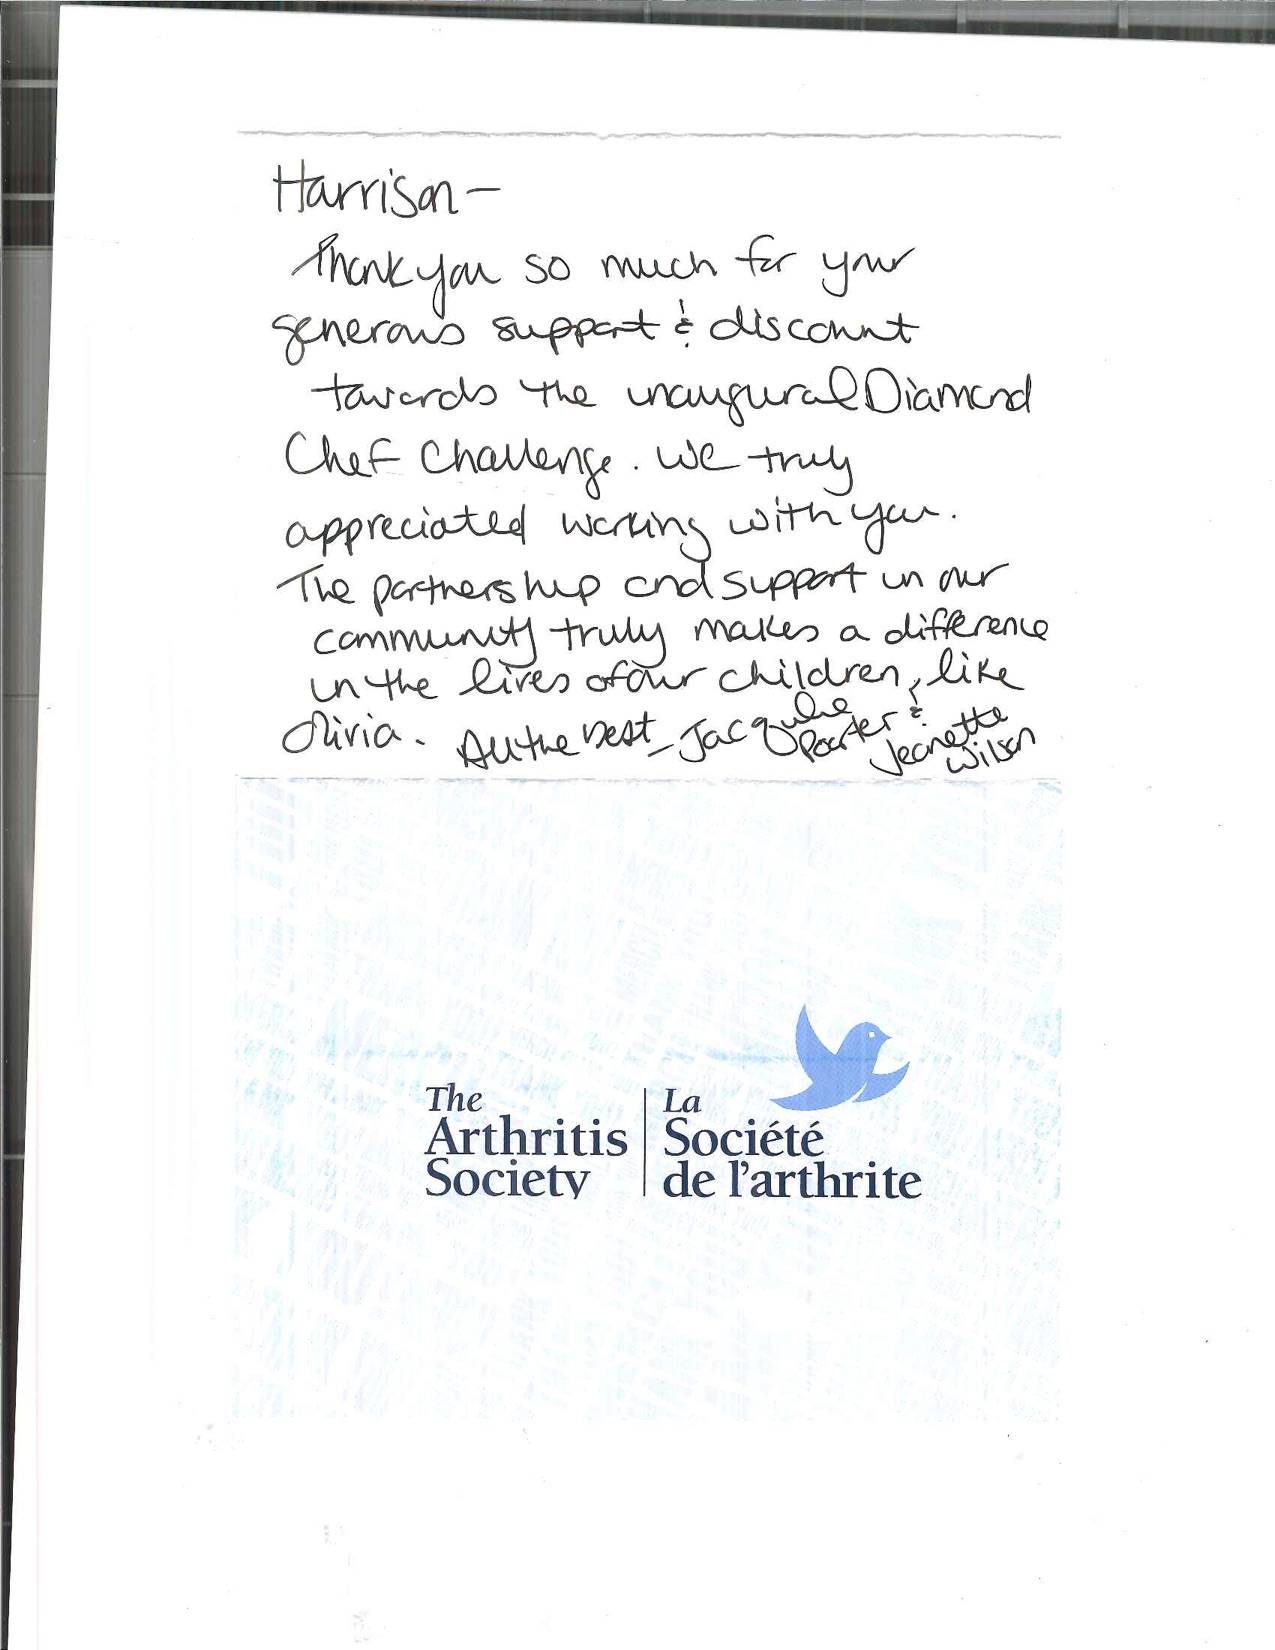 Harrison -
Thank you so much for your
generous support & discount
towards the inaugural Diamond
Chef Challenge. We truly
appreciated working with you.
The partnership and support in our
community truly makes a difference
in the lives of our children, like
Olivia. All the best - Jacquline
Porter &
Jeanette
Wilson
The
Arthritis
Society
La
Société
de l'arthrite